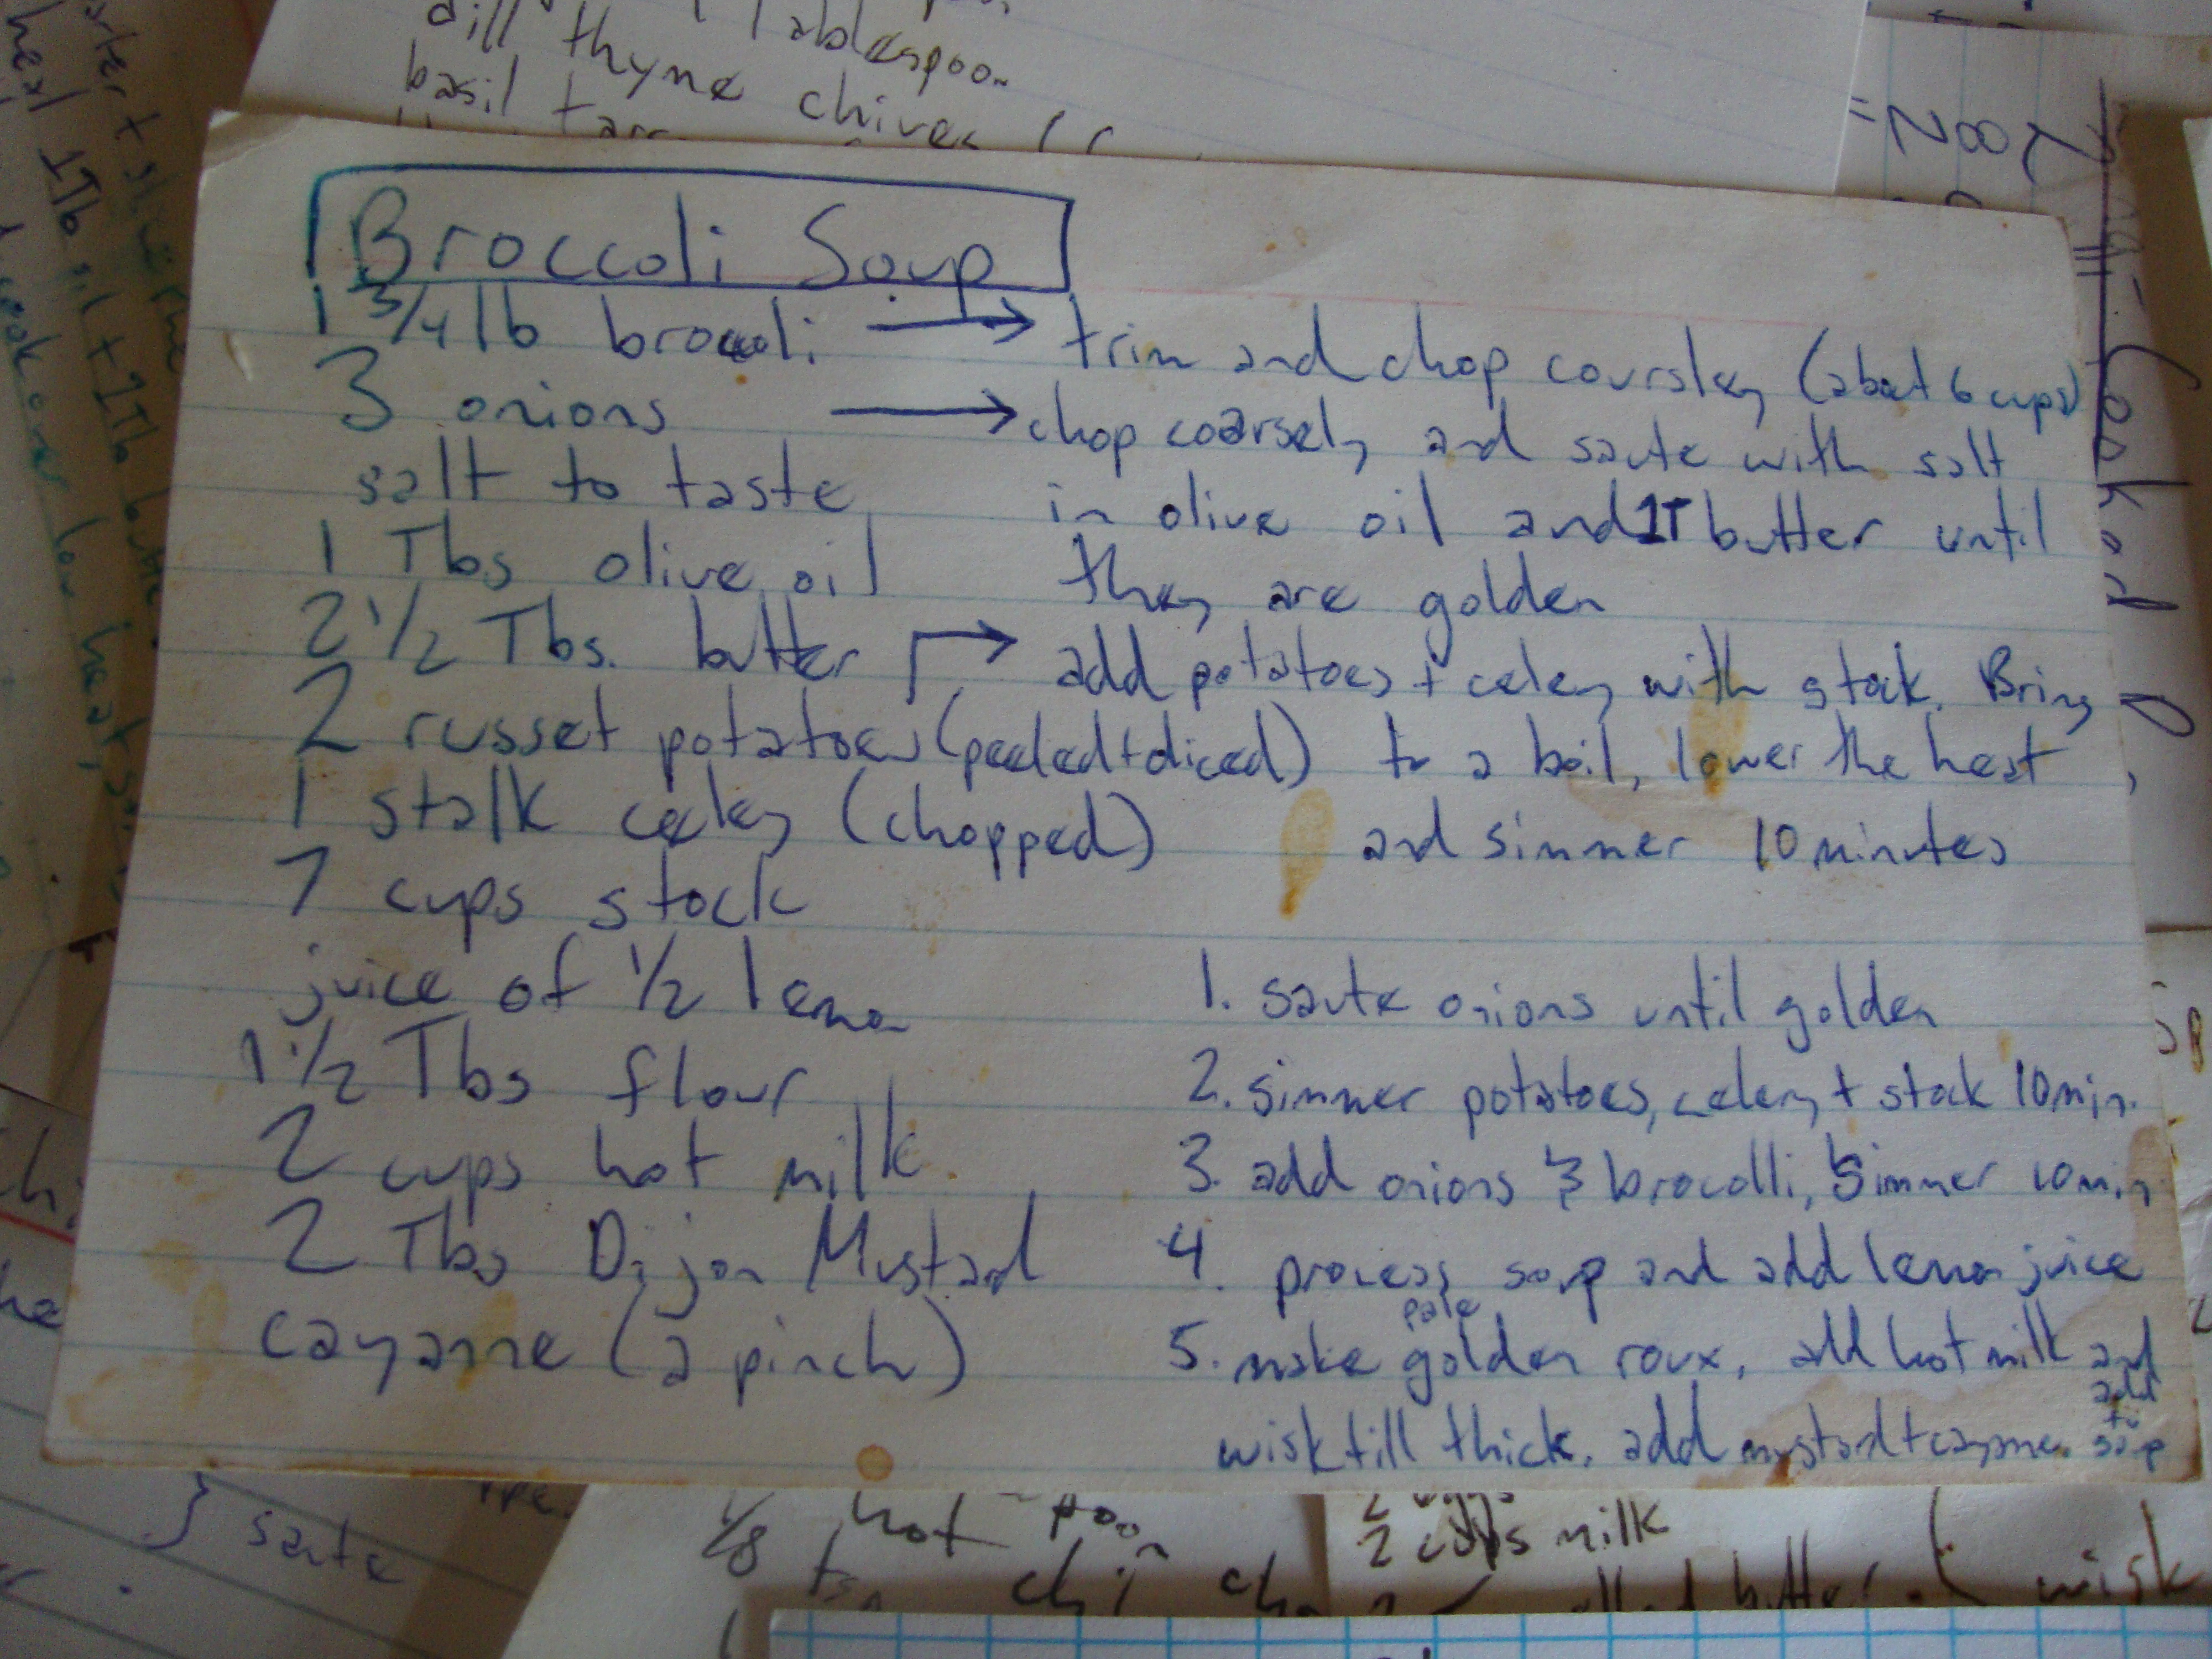 dill thyme tablespoon
basil chives
Broccoli Soup
1 3/4 lb broccoli → trim and chop coursley (about 6 cups)
3 onions → chop coarsely and saute with salt
salt to taste in olive oil and 1T butter until
1 Tbs olive oil they are golden
2 1/2 Tbs. butter → add potatoes + celery with stock. Bring
2 russet potatoes (peeled + diced) to a boil, lower the heat
1 stalk celery (chopped) and simmer 10 minutes
7 cups stock
juice of 1/2 lemon
1 1/2 Tbs flour
2 cups hot milk
2 Tbs Dijon Mustard
cayanne (a pinch)
1. saute onions until golden
2. simmer potatoes, celery + stock 10 min.
3. add onions & brocolli, simmer 10 min
4. process soup and add lemon juice
5. make pale golden roux, add hot milk and
wisk till thick. add mustard + cayanne. add to soup
} saute
1/8
hot
2 cups milk
butter
wisk
1Tb oil + 1Tb